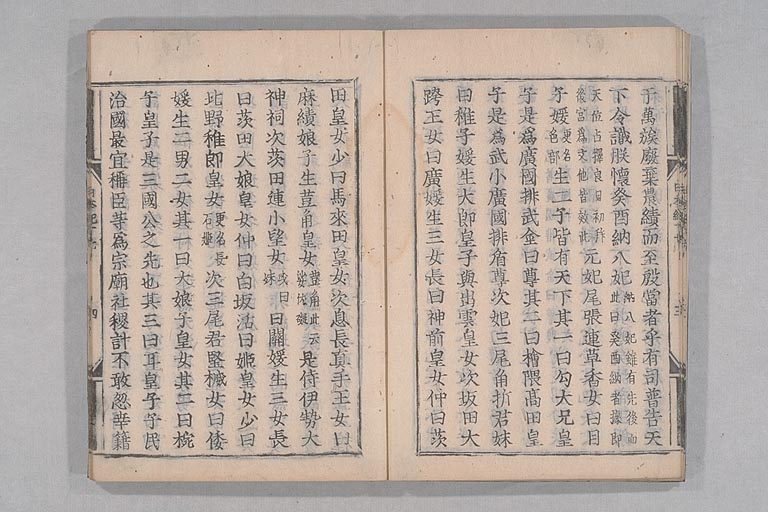 于萬族廢棄農績而至殷富者乎有司普告天
下令識朕懷癸酉納八妃納八妃雖有先後而此曰癸酉納者據即
天位占擇良日初拜後宮爲文他皆效此元妃尾張連草香女曰目
子媛更名色部生二子皆有天下其一曰勾大兄皇
子是爲廣國排武金日尊其二曰檜隈高田皇
子是爲武小廣國排盾尊次妃三尾角折君妹
曰稚子媛生大郎皇子與出雲皇女次坂田大
跨王女曰廣媛生三女長曰神前皇女仲曰茨
田皇女少曰馬來田皇女次息長真手王女曰
麻績娘子生荳角皇女荳角此云娑佐礙是侍伊勢大
神祠次茨田連小望女或曰妹曰關媛生三女長
曰茨田大娘皇女仲曰白坂活日姬皇女少曰
北野稚郎皇女更名長石姬次三尾君堅楲女曰倭
媛生二男二女其一曰大娘子皇女其二曰椀
子皇子是三國公之先也其三曰耳皇子子民
治國最宜稱臣等爲宗廟社稷計不敢忽幸籍
四
三